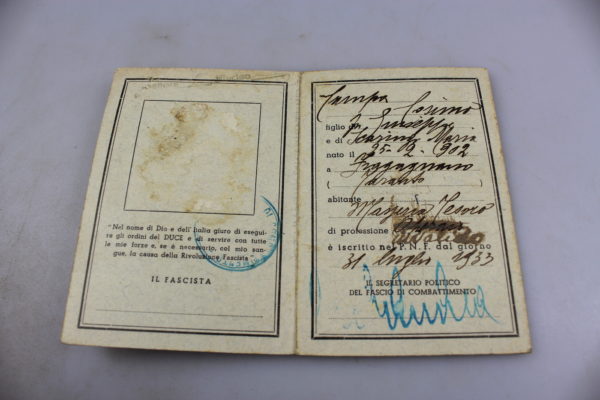 "Nel nome di Dio e dell'Italia giuro di esegui-
re gli ordini del DUCE e di servire con tutte
le mie forze e, se è necessario, col mio san-
gue, la causa della Rivoluzione Fascista"
IL FASCISTA
Campa Cosimo
figlio di Giuseppe
e di Maria
nato il 25-2-902
a Fragagnano
( Taranto )
abitante
di professione
è iscritto nel P.N.F. dal giorno
31 luglio 1933
IL SEGRETARIO POLITICO
DEL FASCIO DI COMBATTIMENTO